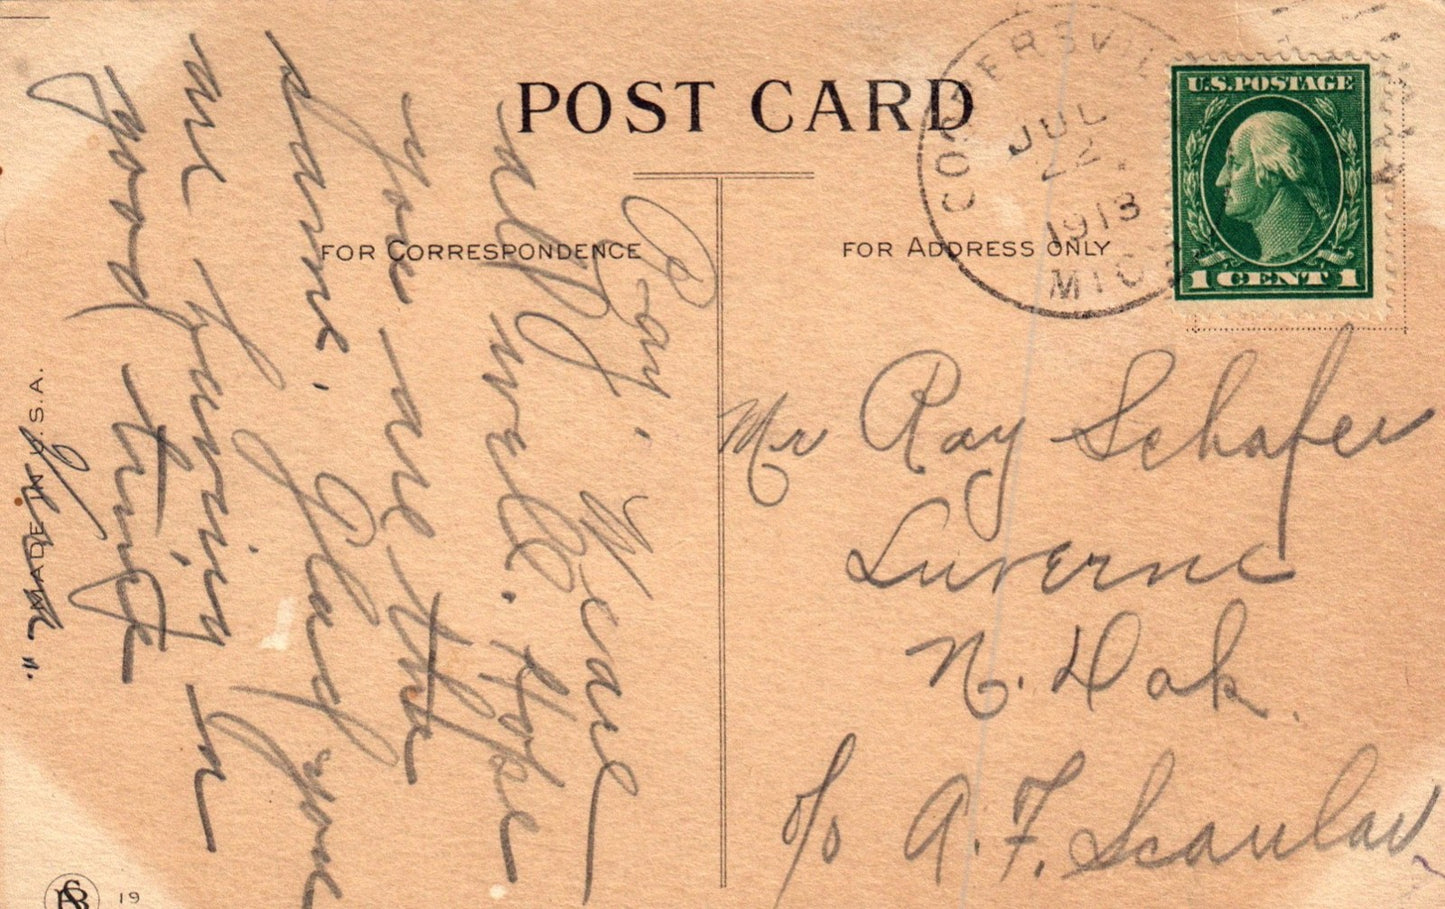 POST CARD
FOR CORRESPONDENCE
FOR ADDRESS ONLY
COOPERSVIL
JUL
22.
1913
MICH
U.S. POSTAGE
1 CENT 1
Ray. We are
all well. Hope
you are the
same. Glad you
are having
good time
MADE IN U.S.A.
19
Mr Ray Schafer
Luverne
N. Dak.
c/o A. F. Scanlan